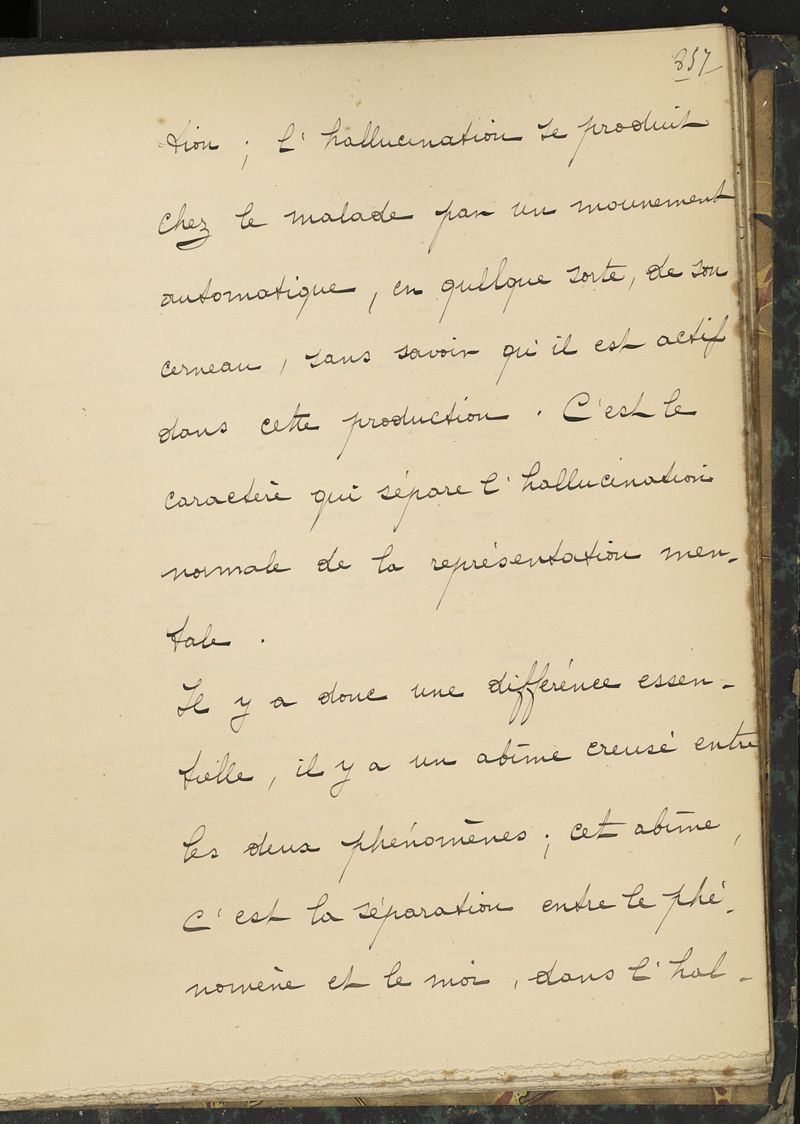 357
tion ; l'hallucination se produit
chez le malade par un mouvement
automatique, en quelque sorte, de son
cerveau, sans savoir qu'il est actif
dans cette production. C'est le
caractère qui sépare l'hallucination
normale de la représentation men-
tale.
Il y a donc une différence essen-
tielle, il y a un abîme creusé entre
les deux phénomènes; cet abîme,
c'est la séparation entre le phé-
nomène et le moi, dans l'hal-